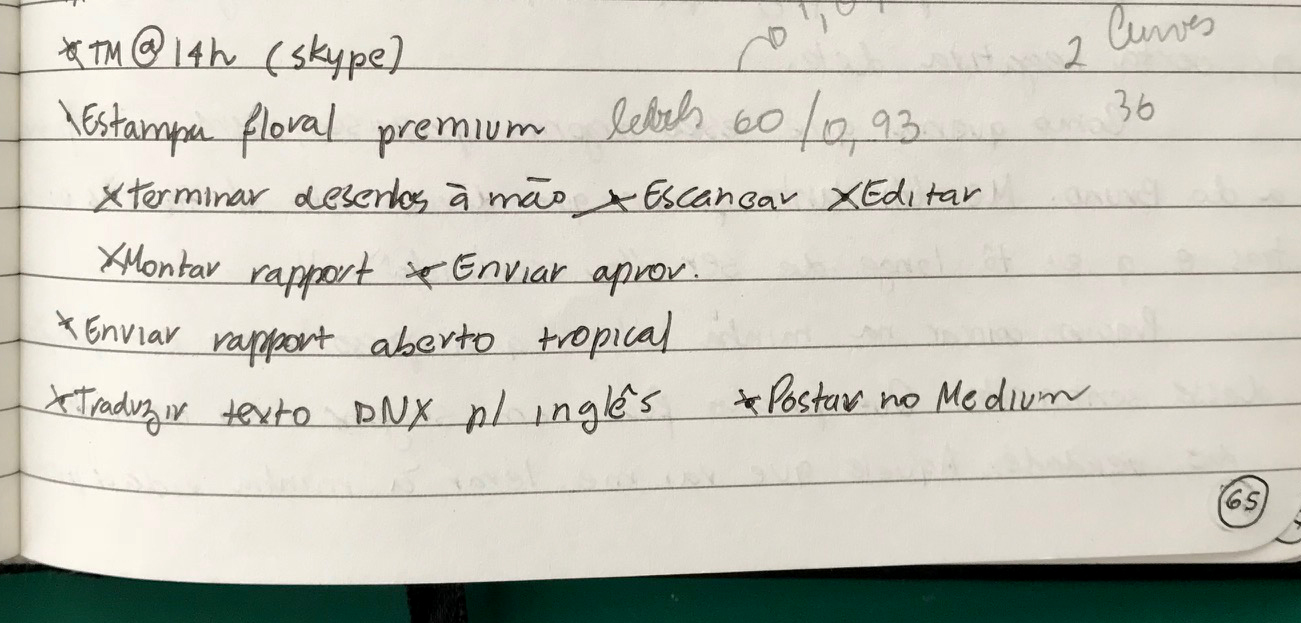 2 Curves
*TM@14h (skype)
\Estampa floral premium levels 60/0,93 36
xterminar desenhos à mão *Escanear xEditar
xMontar rapport *Enviar aprov.
*Enviar rapport aberto tropical
*Traduzir texto DNX p/ inglês *Postar no Medium
65